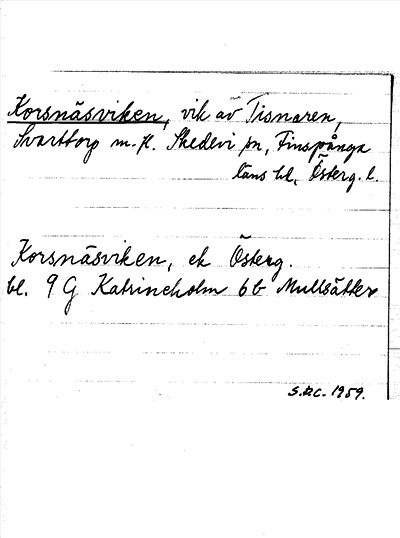 Korsnäsviken, vik av Tisnaren,
Svarttorp m.fl. Skedevi sn, Finspånga
läns hd, Österg. l.
Korsnäsviken, ek Österg.
bl. 9 G Katrineholm 6b Mullsätter
S.B.C. 1959.